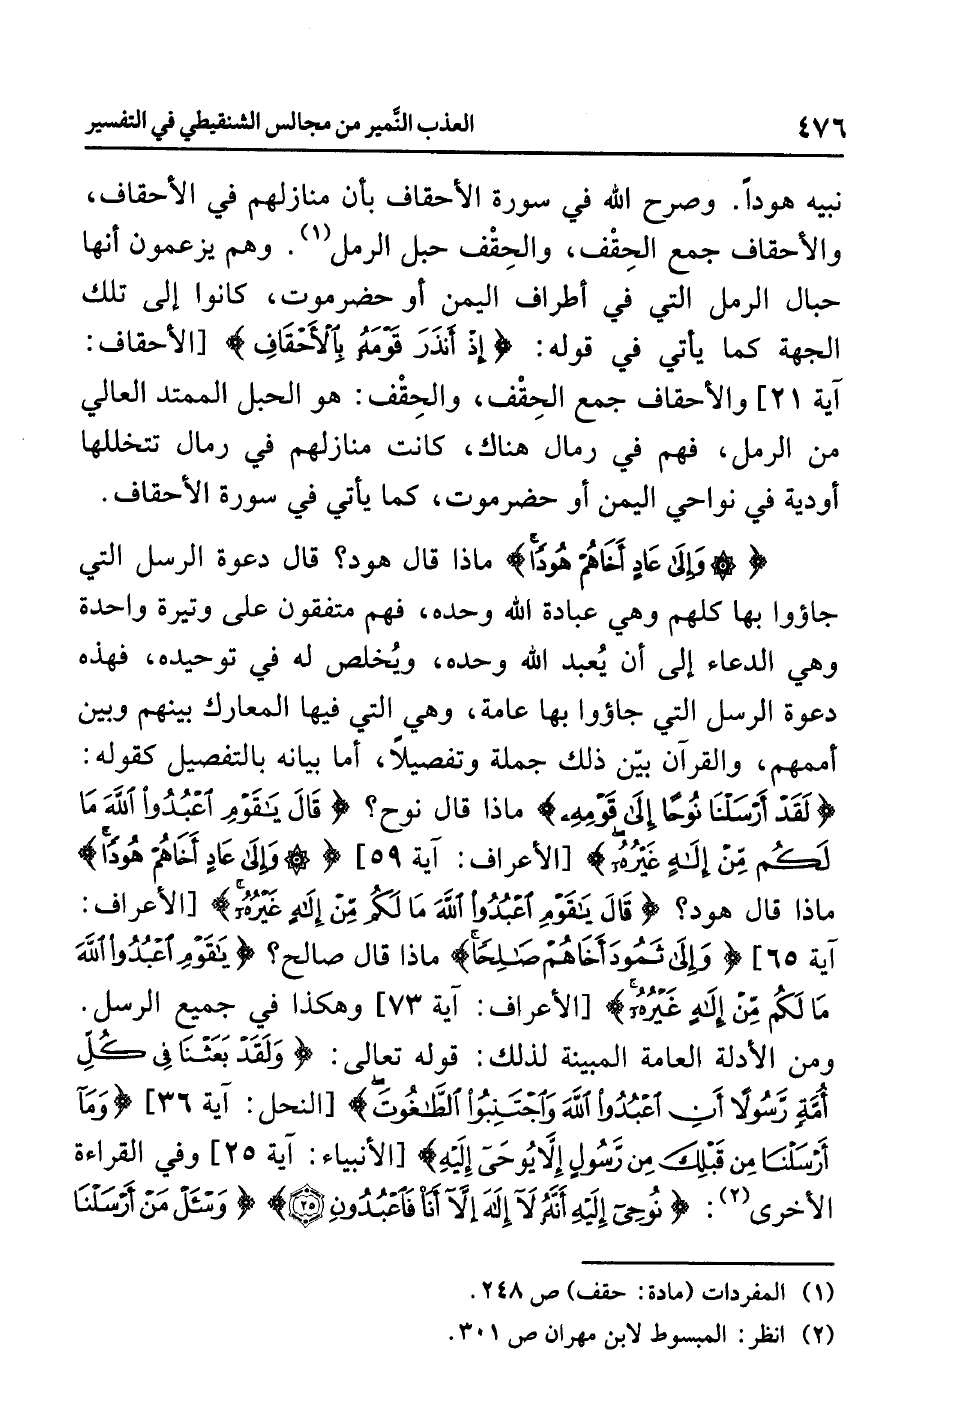 ٤٧٦ العذب النَّمير من مجالس الشنقيطي في التفسير
نبيه هوداً. وصرح الله في سورة الأحقاف بأن منازلهم في الأحقاف،
والأحقاف جمع الحِقْف، والحِقْف حبل الرمل(١). وهم يزعمون أنها
حبال الرمل التي في أطراف اليمن أو حضرموت، كانوا إلى تلك
الجهة كما يأتي في قوله: ﴿ إِذْ أَنذَرَ قَوْمَهُۥ بِٱلْأَحْقَافِ ﴾ [الأحقاف:
آية ٢١] والأحقاف جمع الحِقْف، والحِقْف: هو الحبل الممتد العالي
من الرمل، فهم في رمال هناك، كانت منازلهم في رمال تتخللها
أودية في نواحي اليمن أو حضرموت، كما يأتي في سورة الأحقاف.
﴿ ۞ وَإِلَىٰ عَادٍ أَخَاهُمْ هُودًاۚ ﴾ ماذا قال هود؟ قال دعوة الرسل التي
جاؤوا بها كلهم وهي عبادة الله وحده، فهم متفقون على وتيرة واحدة
وهي الدعاء إلى أن يُعبد الله وحده، ويُخلص له في توحيده، فهذه
دعوة الرسل التي جاؤوا بها عامة، وهي التي فيها المعارك بينهم وبين
أممهم، والقرآن بيّن ذلك جملة وتفصيلاً، أما بيانه بالتفصيل كقوله:
﴿ لَقَدْ أَرْسَلْنَا نُوحًا إِلَىٰ قَوْمِهِۦ ﴾ ماذا قال نوح؟ ﴿ قَالَ يَٰقَوْمِ ٱعْبُدُوا۟ ٱللَّهَ مَا
لَكُم مِّنْ إِلَٰهٍ غَيْرُهُۥٓ ﴾ [الأعراف: آية ٥٩] ﴿ ۞ وَإِلَىٰ عَادٍ أَخَاهُمْ هُودًاۚ ﴾
ماذا قال هود؟ ﴿ قَالَ يَٰقَوْمِ ٱعْبُدُوا۟ ٱللَّهَ مَا لَكُم مِّنْ إِلَٰهٍ غَيْرُهُۥٓۚ ﴾ [الأعراف:
آية ٦٥] ﴿ وَإِلَىٰ ثَمُودَ أَخَاهُمْ صَٰلِحًاۚ ﴾ ماذا قال صالح؟ ﴿ يَٰقَوْمِ ٱعْبُدُوا۟ ٱللَّهَ
مَا لَكُم مِّنْ إِلَٰهٍ غَيْرُهُۥۖ ﴾ [الأعراف: آية ٧٣] وهكذا في جميع الرسل.
ومن الأدلة العامة المبينة لذلك: قوله تعالى: ﴿ وَلَقَدْ بَعَثْنَا فِى كُلِّ
أُمَّةٍ رَّسُولًا أَنِ ٱعْبُدُوا۟ ٱللَّهَ وَٱجْتَنِبُوا۟ ٱلطَّٰغُوتَۖ ﴾ [النحل: آية ٣٦] ﴿ وَمَآ
أَرْسَلْنَا مِن قَبْلِكَ مِن رَّسُولٍ إِلَّا يُوحَىٰٓ إِلَيْهِ ﴾ [الأنبياء: آية ٢٥] وفي القراءة
الأخرى(٢): ﴿ نُوحِىٓ إِلَيْهِ أَنَّهُۥ لَآ إِلَٰهَ إِلَّآ أَنَا۠ فَٱعْبُدُونِ ٢٥ ﴾ ﴿ وَسْـَٔلْ مَنْ أَرْسَلْنَا
(١) المفردات (مادة: حقف) ص ٢٤٨.
(٢) انظر: المبسوط لابن مهران ص ٣٠١.